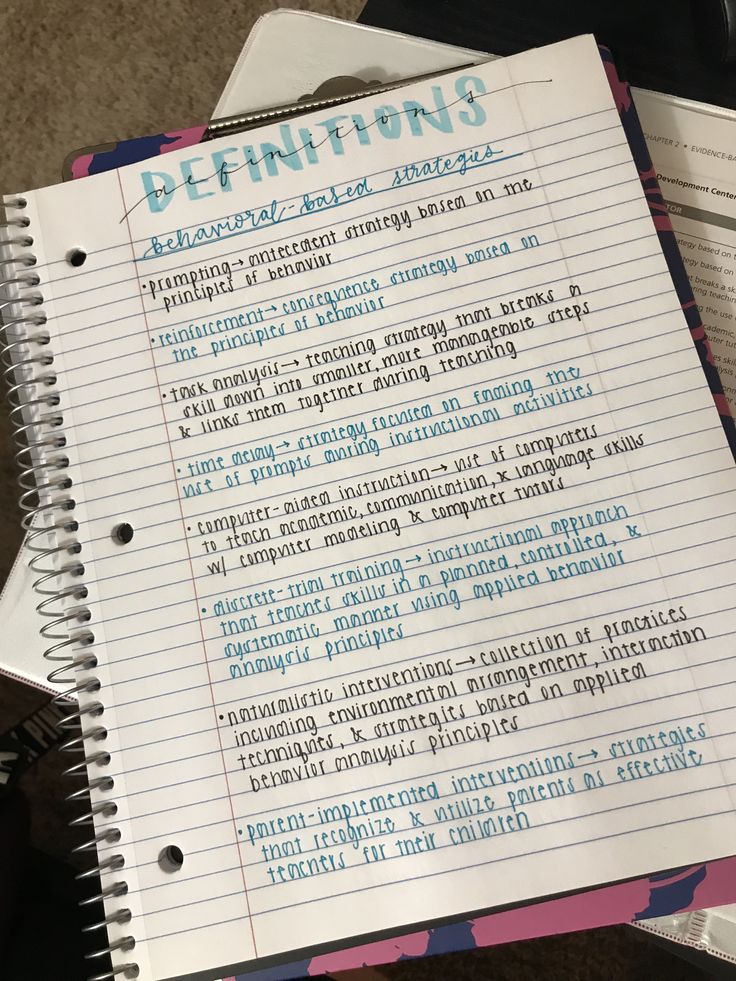 DEFINITIONS
definitions
behavioral-based strategies
• prompting → antecedent strategy based on the
principles of behavior
• reinforcement → consequence strategy based on
the principles of behavior
• task analysis → teaching strategy that breaks a
skill down into smaller, more manageable steps
& links them together during teaching
• time delay → strategy focused on fading the
use of prompts during instructional activities
• computer-aided instruction → use of computers
to teach academic, communication, & language skills
w/ computer modeling & computer tutors
• discrete-trial training → instructional approach
that teaches skills in a planned, controlled, &
systematic manner using applied behavior
analysis principles
• naturalistic interventions → collection of practices
including environmental arrangement, interaction
techniques, & strategies based on applied
behavior analysis principles
• parent-implemented interventions → strategies
that recognize & utilize parents as effective
teachers for their children
CHAPTER 2 • EVIDENCE-BA
Development Center
TOR
tegy based on t
egy based on
breaks a sk
ring teachin
ng the use
cademic,
uter tut
es skills
alysis